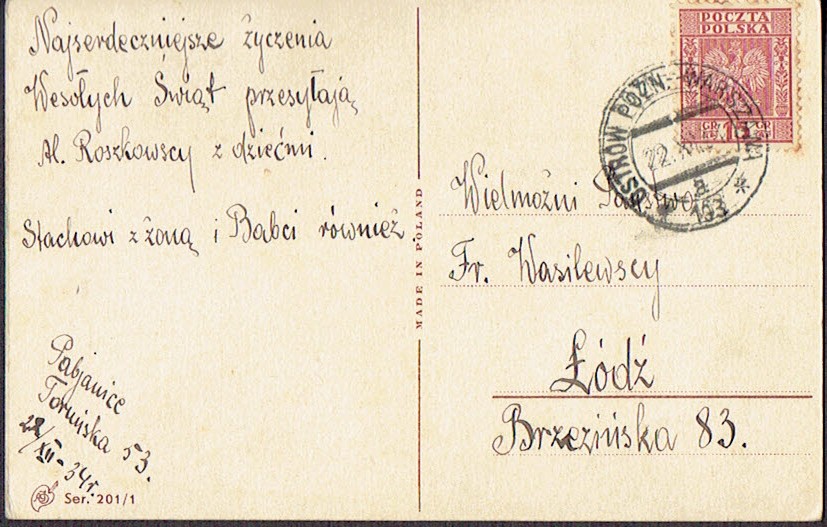 Najserdeczniejsze życzenia
Wesołych Świąt przesyłają
Al. Roszkowscy z dziećmi.
Stachowi z żoną i Babci również
Pabjanice
Toruńska 53.
22/XII-34r.
Ser. 201/1
MADE IN POLAND
POCZTA
POLSKA
GR 15 GR
OSTRÓW POZN.-WARSZAWA
22.XII
a
* 153 *
Wielmożni Państwo
Fr. Wasilewscy
Łódź
Brzezińska 83.